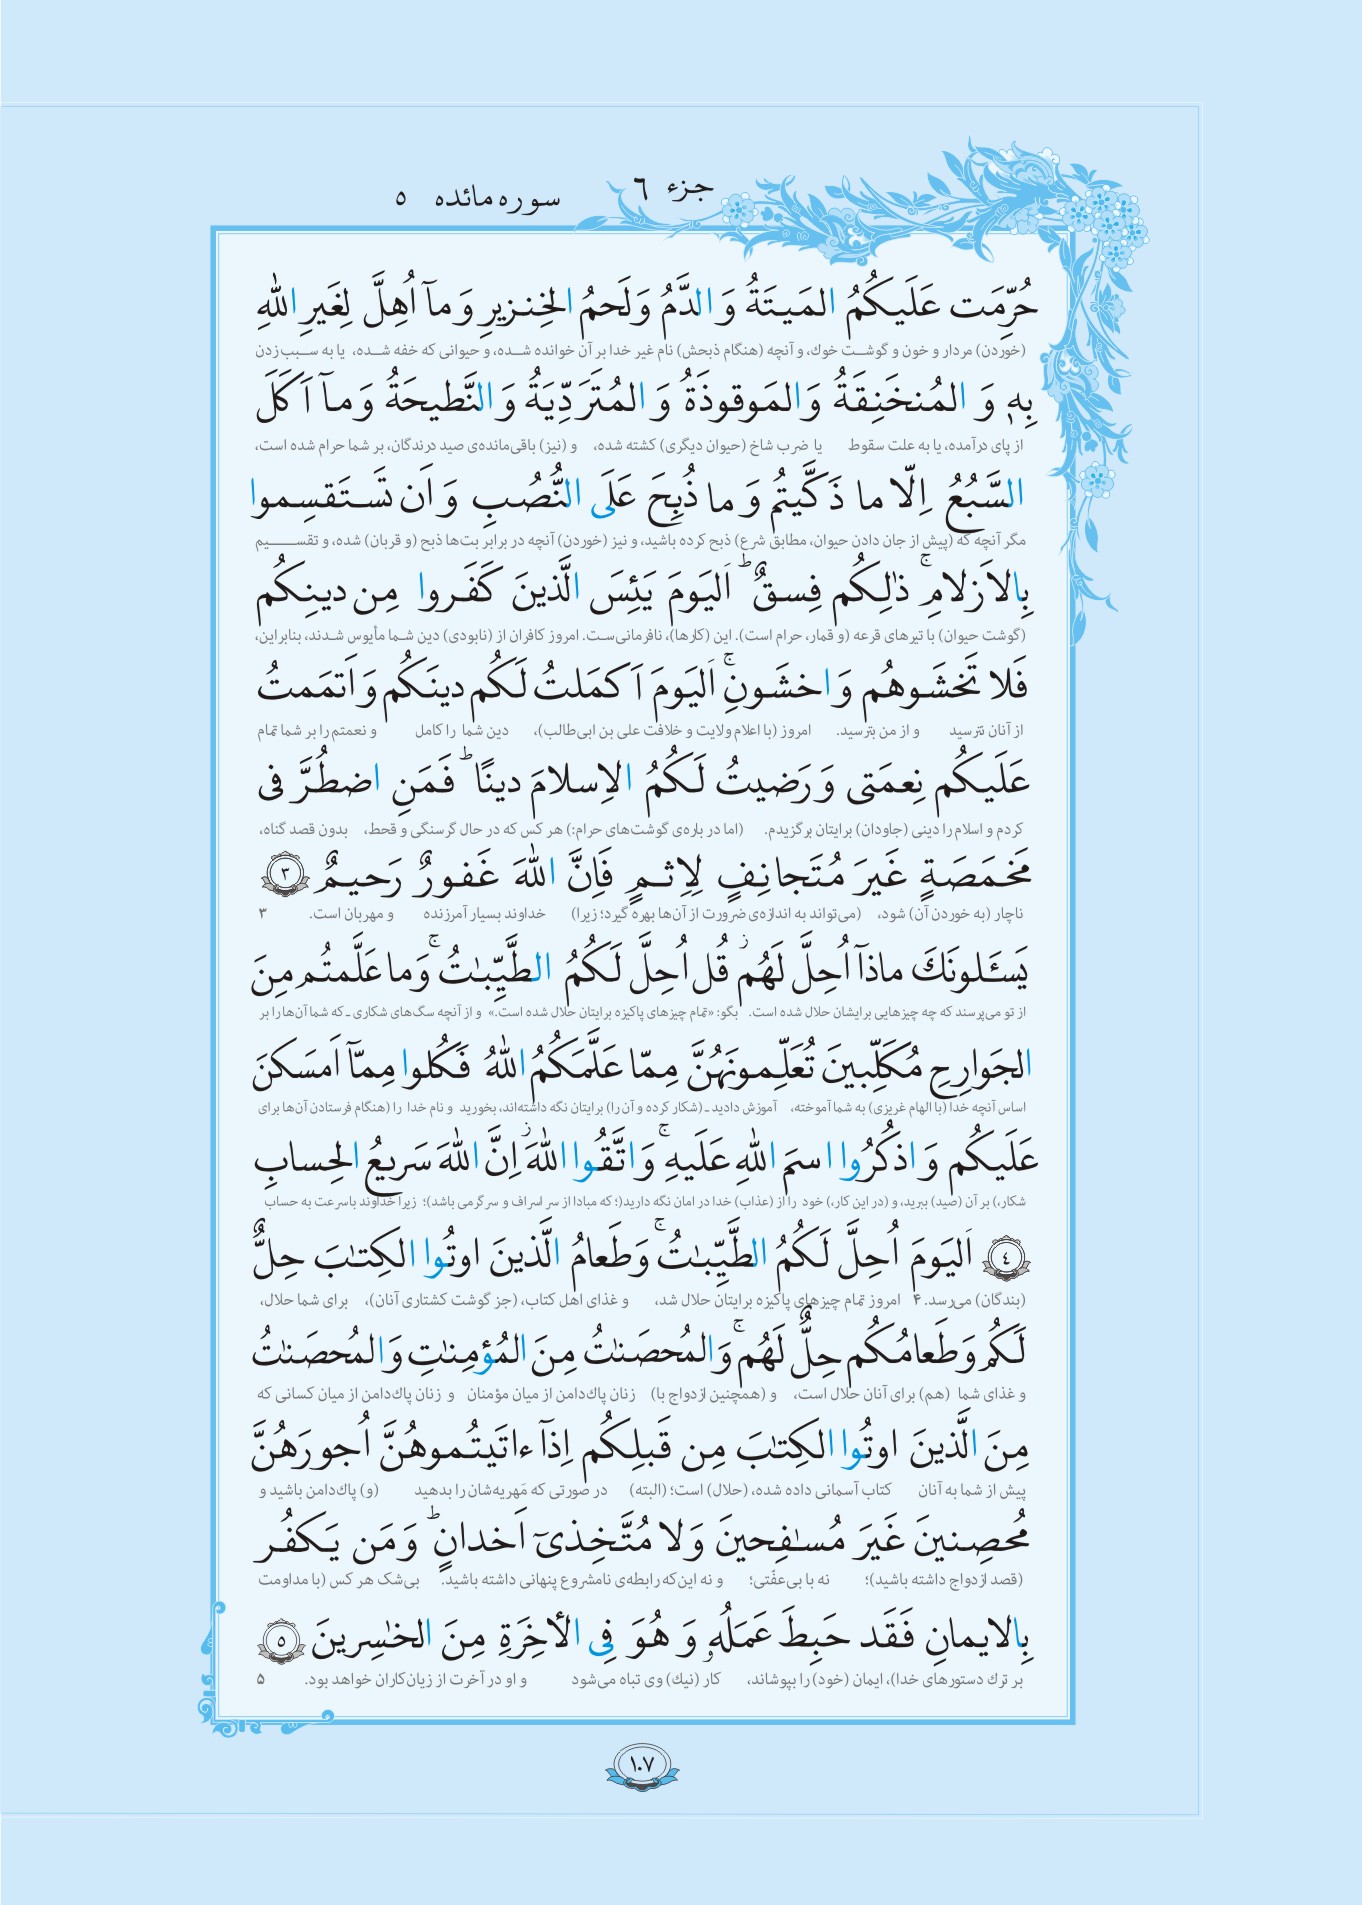 جزء ٦ سوره مائده ٥
حُرِّمَت عَلَيكُمُ المَيتَةُ وَ الدَّمُ وَ لَحمُ الخِنزيرِ وَ مآ اُهِلَّ لِغَيرِ اللّٰهِ
(خوردن) مردار و خون و گوشت خوك، و آنچه (هنگام ذبحش) نام غير خدا بر آن خوانده شده، و حيوانى كه خفه شده، يا به سبب زدن
بِهٖ وَ المُنخَنِقَةُ وَ المَوقوذَةُ وَ المُتَرَدِّيَةُ وَ النَّطيحَةُ وَ مآ اَكَلَ
از پاى درآمده، يا به علت سقوط يا ضرب شاخ (حيوان ديگرى) كشته شده، و (نيز) باقى‌مانده‌ى صيد درندگان، بر شما حرام شده است،
السَّبُعُ اِلّا ما ذَكَّيتُم وَ ما ذُبِحَ عَلَى النُّصُبِ وَ اَن تَستَقسِموا
مگر آنچه كه (پيش از جان دادن حيوان، مطابق شرع) ذبح كرده باشيد، و نيز (خوردن) آنچه در برابر بت‌ها ذبح (و قربان) شده، و تقسيم
بِالاَزلامِ ۚ ذٰلِكُم فِسقٌ ؕ اَليَومَ يَئِسَ الَّذينَ كَفَروا مِن دينِكُم
(گوشت حيوان) با تيرهاى قرعه (و قمار، حرام است). اين (كارها)، نافرمانى‌ست. امروز كافران از (نابودى) دين شما مأيوس شدند، بنابراين،
فَلا تَخشَوهُم وَ اخشَونِ ۚ اَليَومَ اَكمَلتُ لَكُم دينَكُم وَ اَتمَمتُ
از آنان نترسيد و از من بترسيد. امروز (با اعلام ولايت و خلافت على بن ابى‌طالب)، دين شما را كامل و نعمتم را بر شما تمام
عَلَيكُم نِعمَتى وَ رَضيتُ لَكُمُ الاِسلامَ دينًا ؕ فَمَنِ اضطُرَّ فى
كردم و اسلام را دينى (جاودان) برايتان برگزيدم. (اما در باره‌ى گوشت‌هاى حرام:) هر كس كه در حال گرسنگى و قحط، بدون قصد گناه،
مَخمَصَةٍ غَيرَ مُتَجانِفٍ لِاِثمٍ فَاِنَّ اللّٰهَ غَفورٌ رَحيمٌ ٣
ناچار (به خوردن آن) شود، (مى‌تواند به اندازه‌ى ضرورت از آن‌ها بهره گيرد؛ زيرا) خداوند بسيار آمرزنده و مهربان است. ٣
يَسـَٔلونَكَ ماذآ اُحِلَّ لَهُم ؗ قُل اُحِلَّ لَكُمُ الطَّيِّبٰتُ ۚ وَ ما عَلَّمتُم مِنَ
از تو مى‌پرسند كه چه چيزهايى برايشان حلال شده است. بگو: «تمام چيزهاى پاكيزه برايتان حلال شده است.» و از آنچه سگ‌هاى شكارى ـ كه شما آن‌ها را بر
الجَوارِحِ مُكَلِّبينَ تُعَلِّمونَهُنَّ مِمّا عَلَّمَكُمُ اللّٰهُ فَكُلوا مِمَّآ اَمسَكنَ
اساس آنچه خدا (با الهام غريزى) به شما آموخته، آموزش داديد ـ (شكار كرده و آن را) برايتان نگه داشته‌اند، بخوريد و نام خدا را (هنگام فرستادن آن‌ها براى
عَلَيكُم وَ اذكُرُوا اسمَ اللّٰهِ عَلَيهِ ۚ وَ اتَّقُوا اللّٰهَ ؗ اِنَّ اللّٰهَ سَريعُ الحِسابِ
شكار،) بر آن (صيد) ببريد، و (در اين كار،) خود را از (عذاب) خدا در امان نگه داريد(؛ كه مبادا از سر اسراف و سرگرمى باشد)؛ زيرا خداوند باسرعت به حساب
٤ اَليَومَ اُحِلَّ لَكُمُ الطَّيِّبٰتُ ۚ وَ طَعامُ الَّذينَ اوتُوا الكِتٰبَ حِلٌّ
(بندگان) مى‌رسد. ۴ امروز تمام چيزهاى پاكيزه برايتان حلال شد، و غذاى اهل كتاب، (جز گوشت كشتارى آنان)، براى شما حلال،
لَكُم وَ طَعامُكُم حِلٌّ لَهُم ۚ وَ المُحصَنٰتُ مِنَ المُؤمِنٰتِ وَ المُحصَنٰتُ
و غذاى شما (هم) براى آنان حلال است، و (همچنين ازدواج با) زنان پاك‌دامن از ميان مؤمنان و زنان پاك‌دامن از ميان كسانى كه
مِنَ الَّذينَ اوتُوا الكِتٰبَ مِن قَبلِكُم اِذآ ءاتَيتُموهُنَّ اُجورَهُنَّ
پيش از شما به آنان كتاب آسمانى داده شده، (حلال) است؛ (البته) در صورتى كه مَهريه‌شان را بدهيد (و) پاك‌دامن باشيد و
مُحصِنينَ غَيرَ مُسٰفِحينَ وَ لا مُتَّخِذىٓ اَخدانٍ ؕ وَ مَن يَكفُر
(قصد ازدواج داشته باشيد)؛ نه با بى‌عفّتى؛ و نه اين‌كه رابطه‌ى نامشروع پنهانى داشته باشيد. بى‌شک هر كس (با مداومت
بِالايمانِ فَقَد حَبِطَ عَمَلُهٗ وَ هُوَ فِى الأخِرَةِ مِنَ الخٰسِرينَ ٥
بر ترك دستورهاى خدا)، ايمان (خود) را بپوشاند، كار (نيك) وى تباه مى‌شود و او در آخرت از زيان‌كاران خواهد بود. ۵
١٠٧